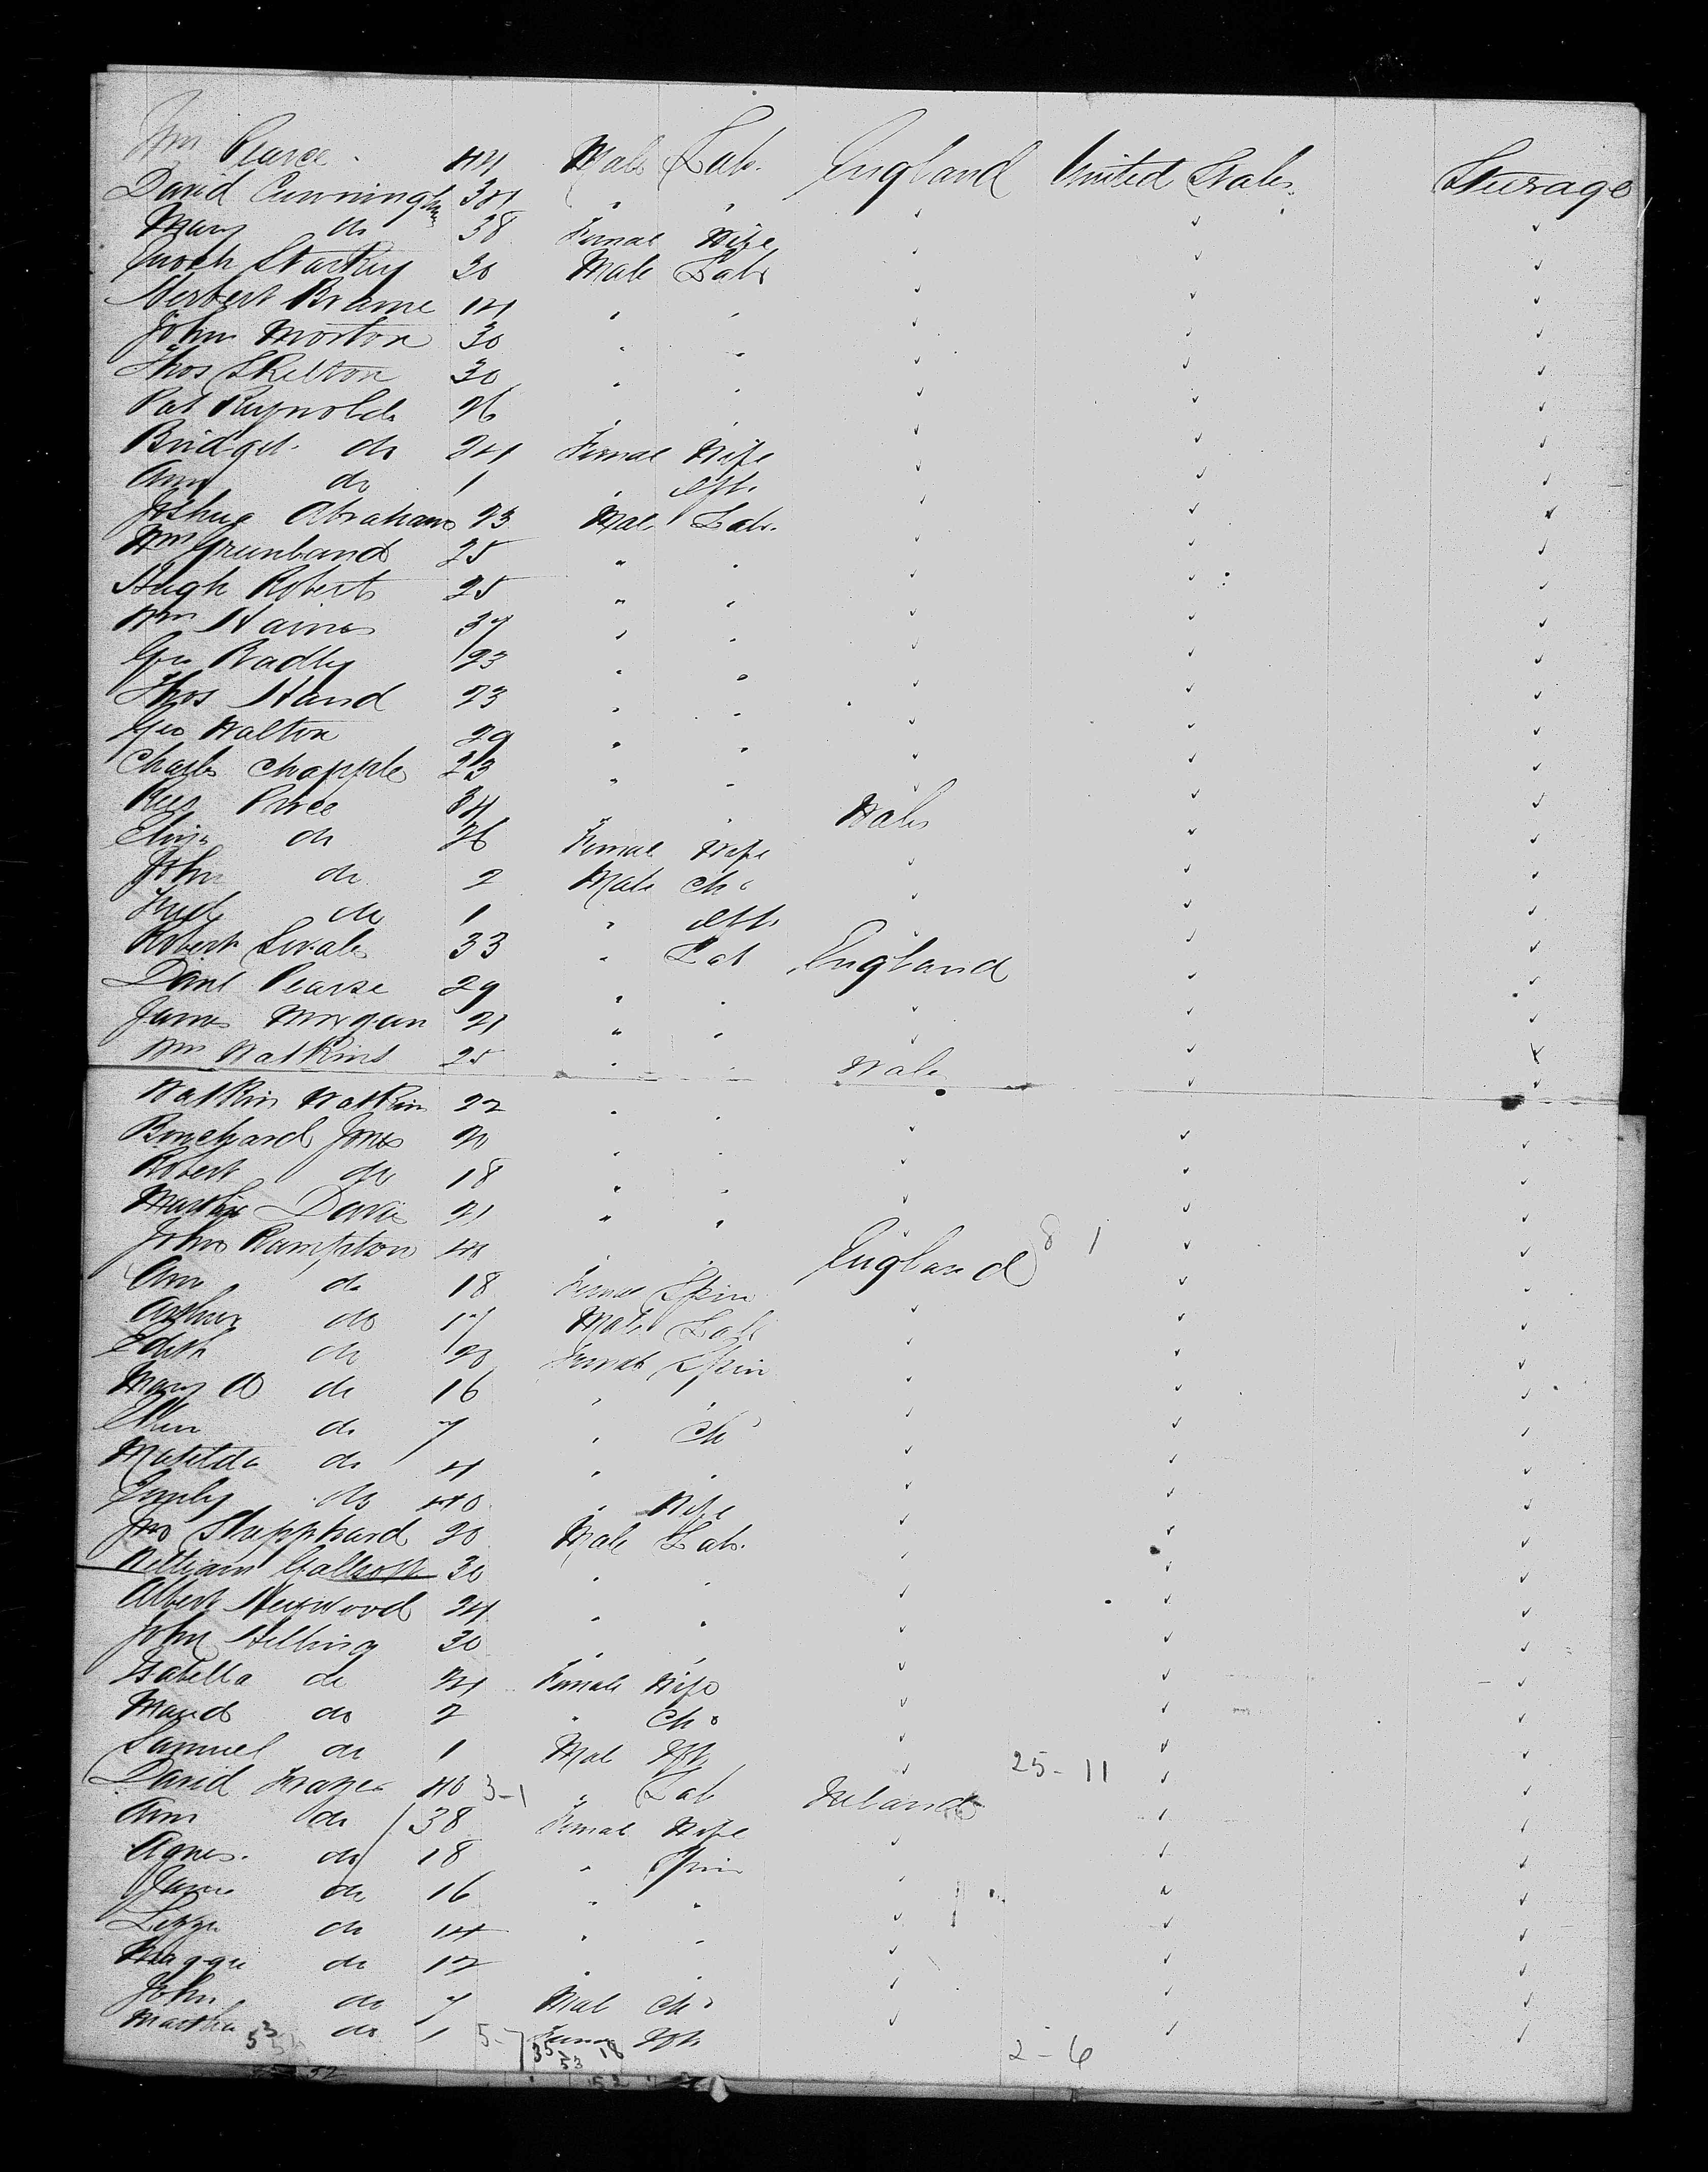 Wm Pearce 44 Male Lab. England United States Steerage
David Cunningham 34 " "
Mary do 38 Femal Wife
Enoch Starkey 30 Male Labr
Herbert Brame 14 " "
John Morton 30 " "
Thos Skelton 30 " "
Pat Reynolds 26 " "
Bridget do 24 Femal Wife
Ann do 1 "
Joshua Abraham 23 Mal Lab.
Wm Greenband 25 " "
Hugh Roberts 25 " "
Wm Haines 37 " "
Geo Bradley 23 " "
Thos Hand 23 " "
Geo Walton 29 " "
Charles Chapple 23 " "
Rees Price 34 " " Wales
Eliza do 26 Femal Wife
John do 2 Male Ch
Fred do 1 "
Robert 33 " Lab England
Danl Pearse 29 " "
James Morgan 21 " "
Wm Watkins 25 " " Wales
Watkin Watkin 22 " "
Jones 20 " "
Robert do 18 " "
Davis 21 " "
John Rampton 44 " " England 8 1
Ann do 18 Femal Spin
Arthur do 17 Male Lab
Edith do 20 Female Spin
Mary A do 16 " "
Ellen do 7 " Ch
Matilda do 4 " "
Emily do 40 " Wife
Jno Shepphard 20 Male Lab.
William 30 " "
Albert Heywood 24 " "
John Hilling 30 " "
Isabella do 24 Female Wife
Maud do 2 " Ch
Samuel do 1 Mal Inft 25-11
David Frazer 40 3-1 " Lab Ireland
Ann do 38 Femal Wife
Agnes. do 18 " Spin
Jane do 16 " "
Lizzie do 14 " "
Maggie do 12 " "
John do 7 Mal Ch
Martha do 1 5-7 Femal Inft
53 35 18 2-6
53
52 52